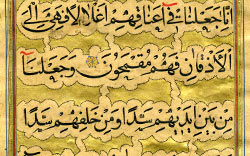 انا جعلنا فی اعناقهم اغلالا فهی الی
الاذقان فهم مقمحون وجعلنا
من بین ایدیهم سدا ومن خلفهم سدا